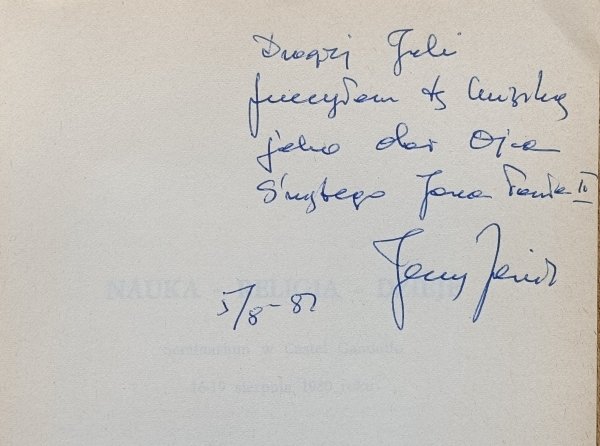 Drogiej Juli
przesyłam tę książkę
jako dar Ojca
Świętego Jana Pawła II
Jerzy Janik
5/8-82
NAUKA - RELIGIA - DZIEJE
Seminarium w Castel Gandolfo
16-19 sierpnia 1980 roku